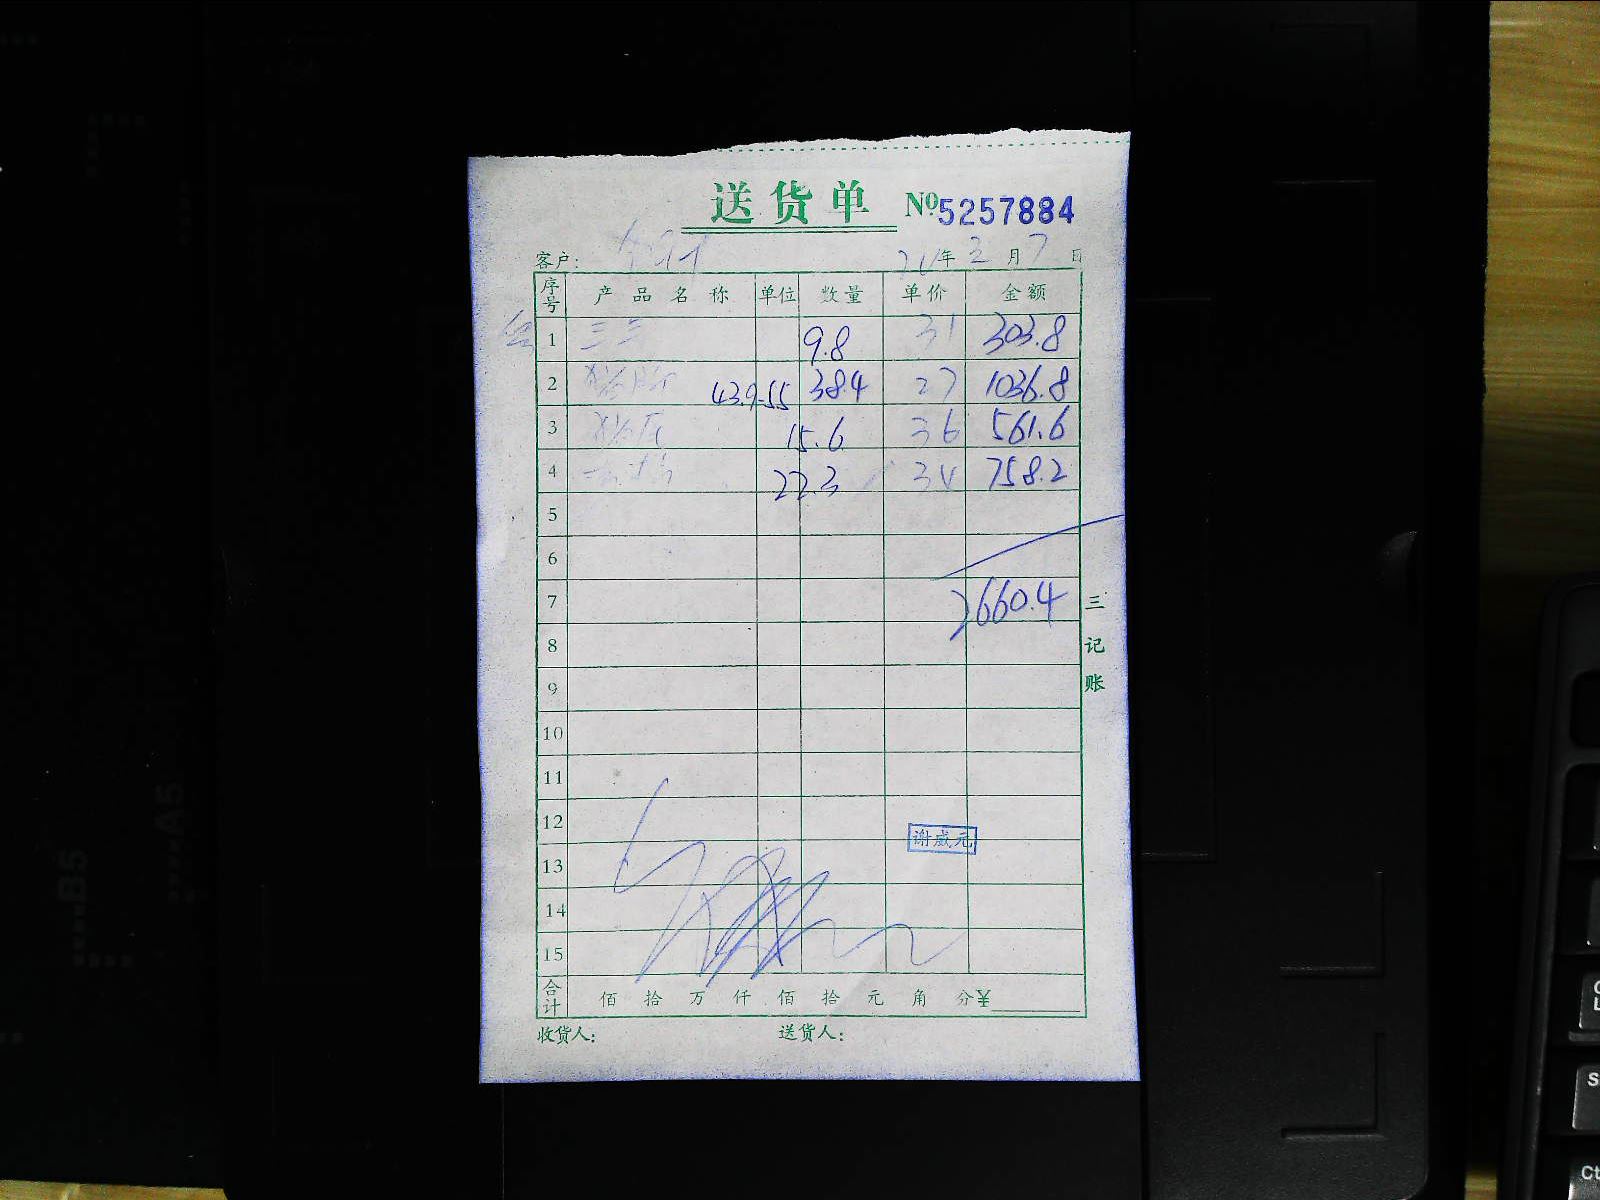 送货单 №5257884
客户: 年 2 月 7 日
序号 产品名称 单位 数量 单价 金额
1 三三 9.8 31 303.8
2 43.9-5.5 38.4 27 1036.8
3 15.6 36 561.6
4 22.3 34 758.2
5
6
7 2660.4
8
9
10
11
12
13
14
15
谢威元
合计 佰 拾 万 仟 佰 拾 元 角 分 ¥
收货人: 送货人:
三记账
B5
A5